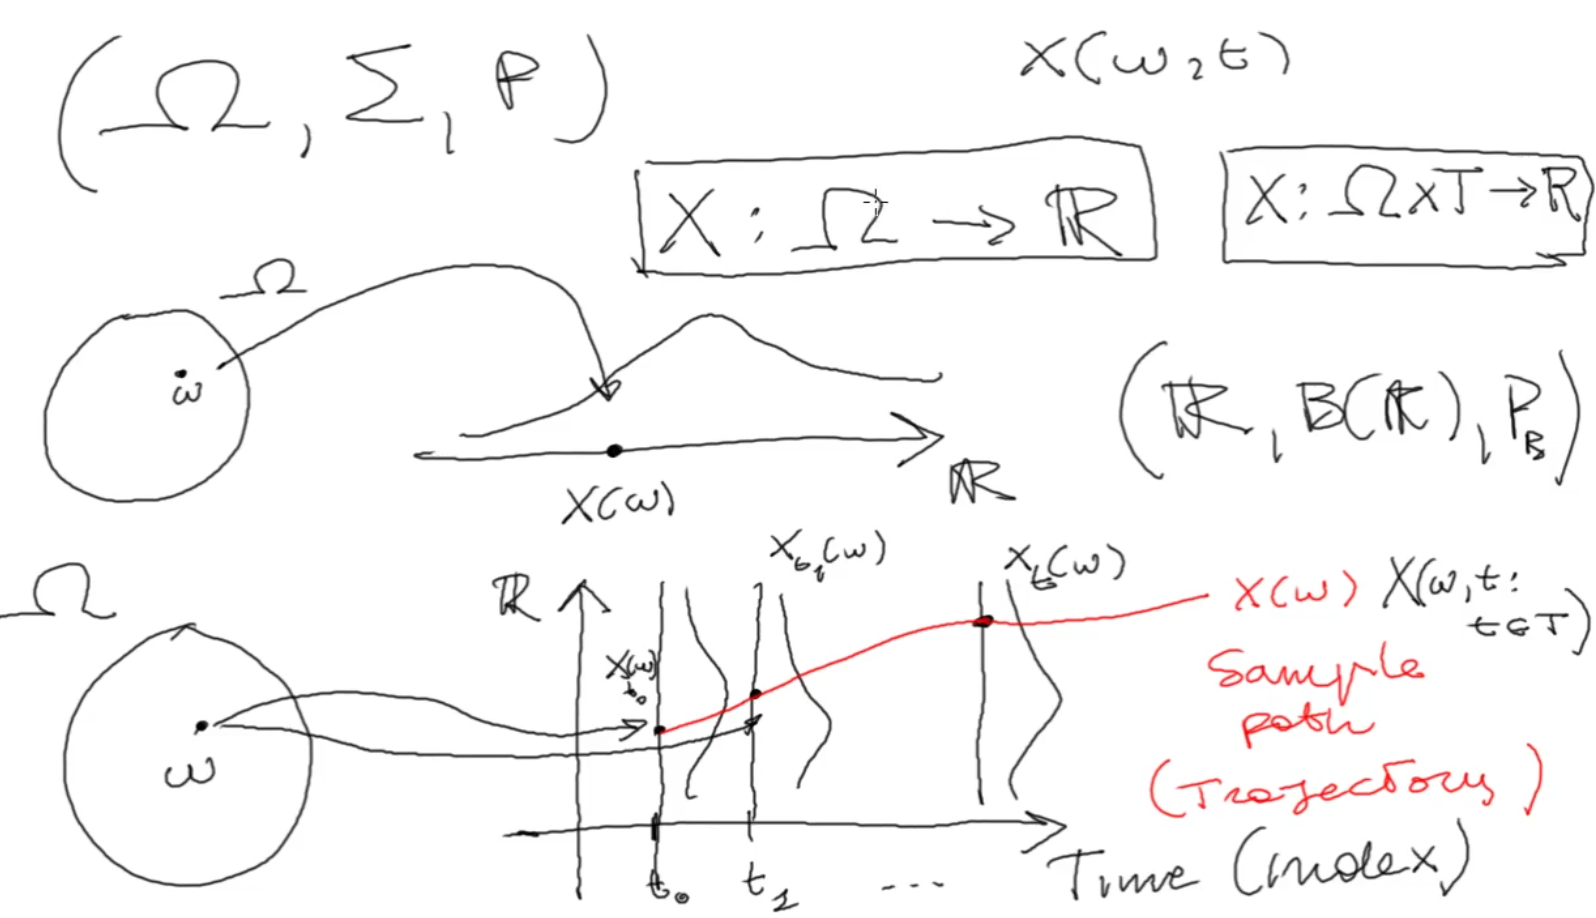 (Ω, Σ, P)
X(ω, t)
X : Ω → ℝ
X : Ω x T → ℝ
Ω
ω
X(ω)
ℝ
(ℝ, B(ℝ), P_B)
Ω
ω
ℝ
X_t₀(ω)
X_t₁(ω)
X_t(ω)
X(ω)
X(ω, t :
t ∈ T)
Sample
path
(Trajectory)
t₀
t₁
...
Time (index)